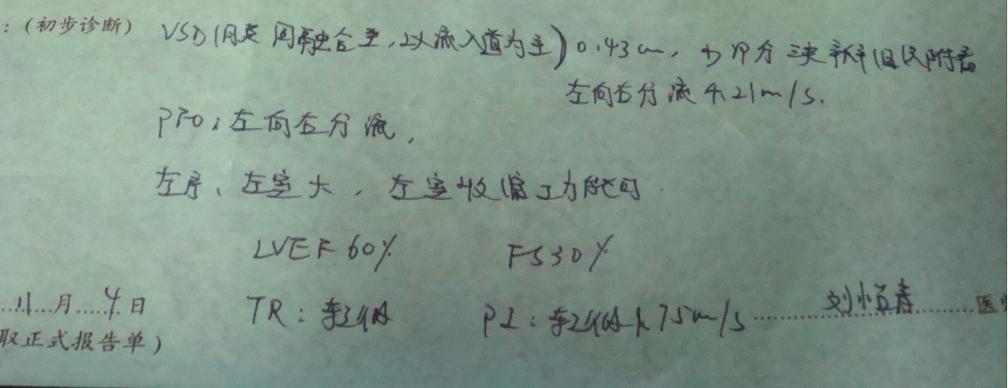 :(初步诊断) VSD(膜周融合型,以流入道为主) 0.43cm, 少部分三尖瓣组织附着
左向右分流 4.21m/s.
PFO:左向右分流,
左房、左室大, 左室收缩功能可.
LVEF 60% FS30%
...11月....4日 TR:轻微 PI:轻微 1.75m/s 医
取正式报告单)